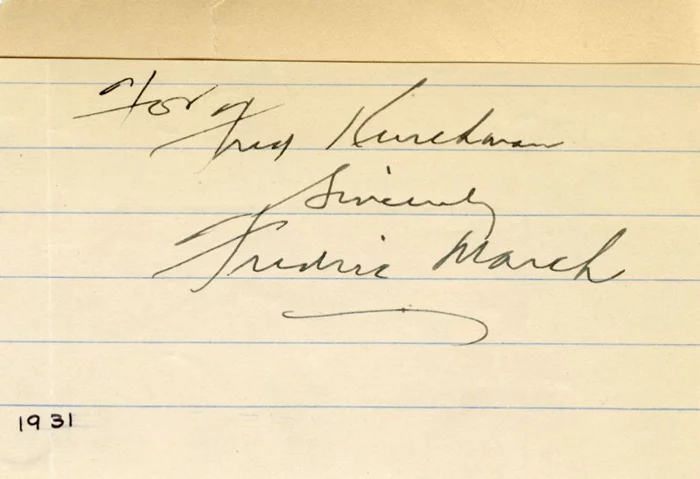 For Fred
Sincerely
Fredric March
1931